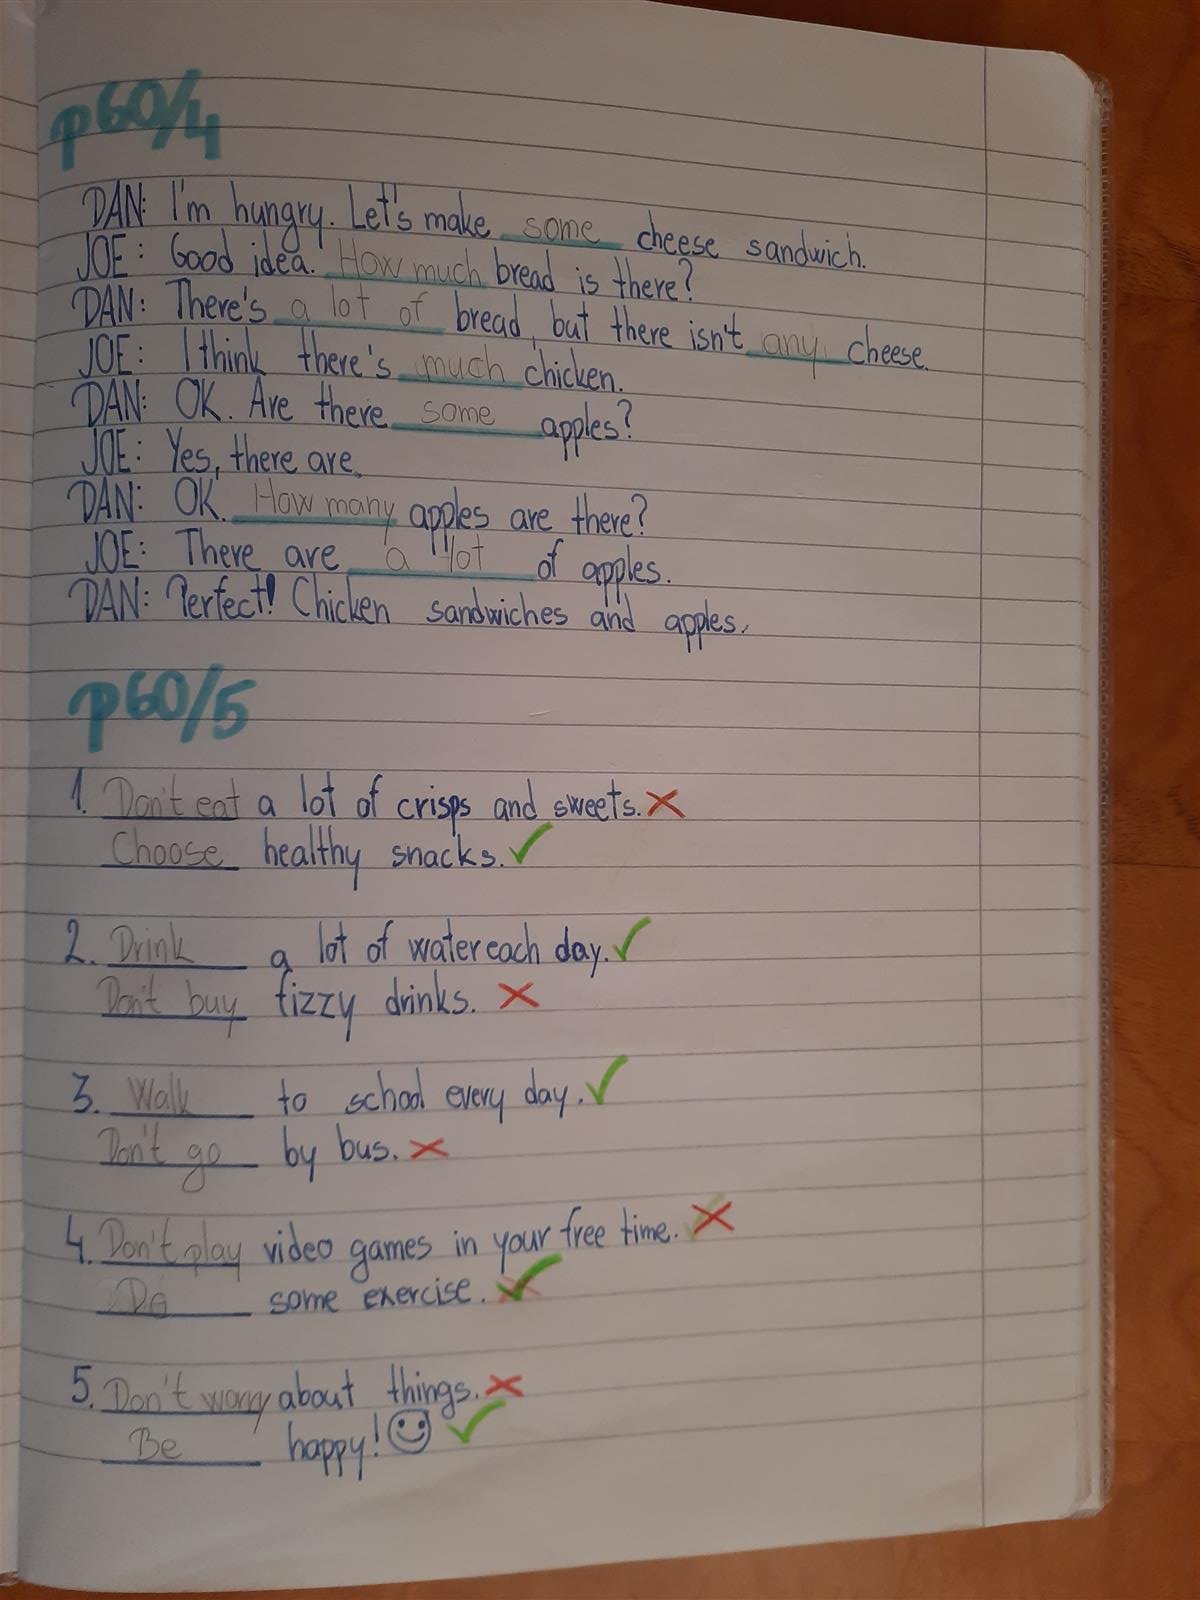 p60/4
DAN: I'm hungry. Let's make some cheese sandwich.
JOE: Good idea. How much bread is there?
DAN: There's a lot of bread, but there isn't any cheese.
JOE: I think there's much chicken.
DAN: OK. Are there some apples?
JOE: Yes, there are.
DAN: OK. How many apples are there?
JOE: There are a lot of apples.
DAN: Perfect! Chicken sandwiches and apples.
p60/5
1. Don't eat a lot of crisps and sweets. ✗
Choose healthy snacks. ✓
2. Drink a lot of water each day. ✓
Don't buy fizzy drinks. ✗
3. Walk to school every day. ✓
Don't go by bus. ✗
4. Don't play video games in your free time. ✗
Do some exercise. ✓
5. Don't worry about things. ✗
Be happy! ☺ ✓